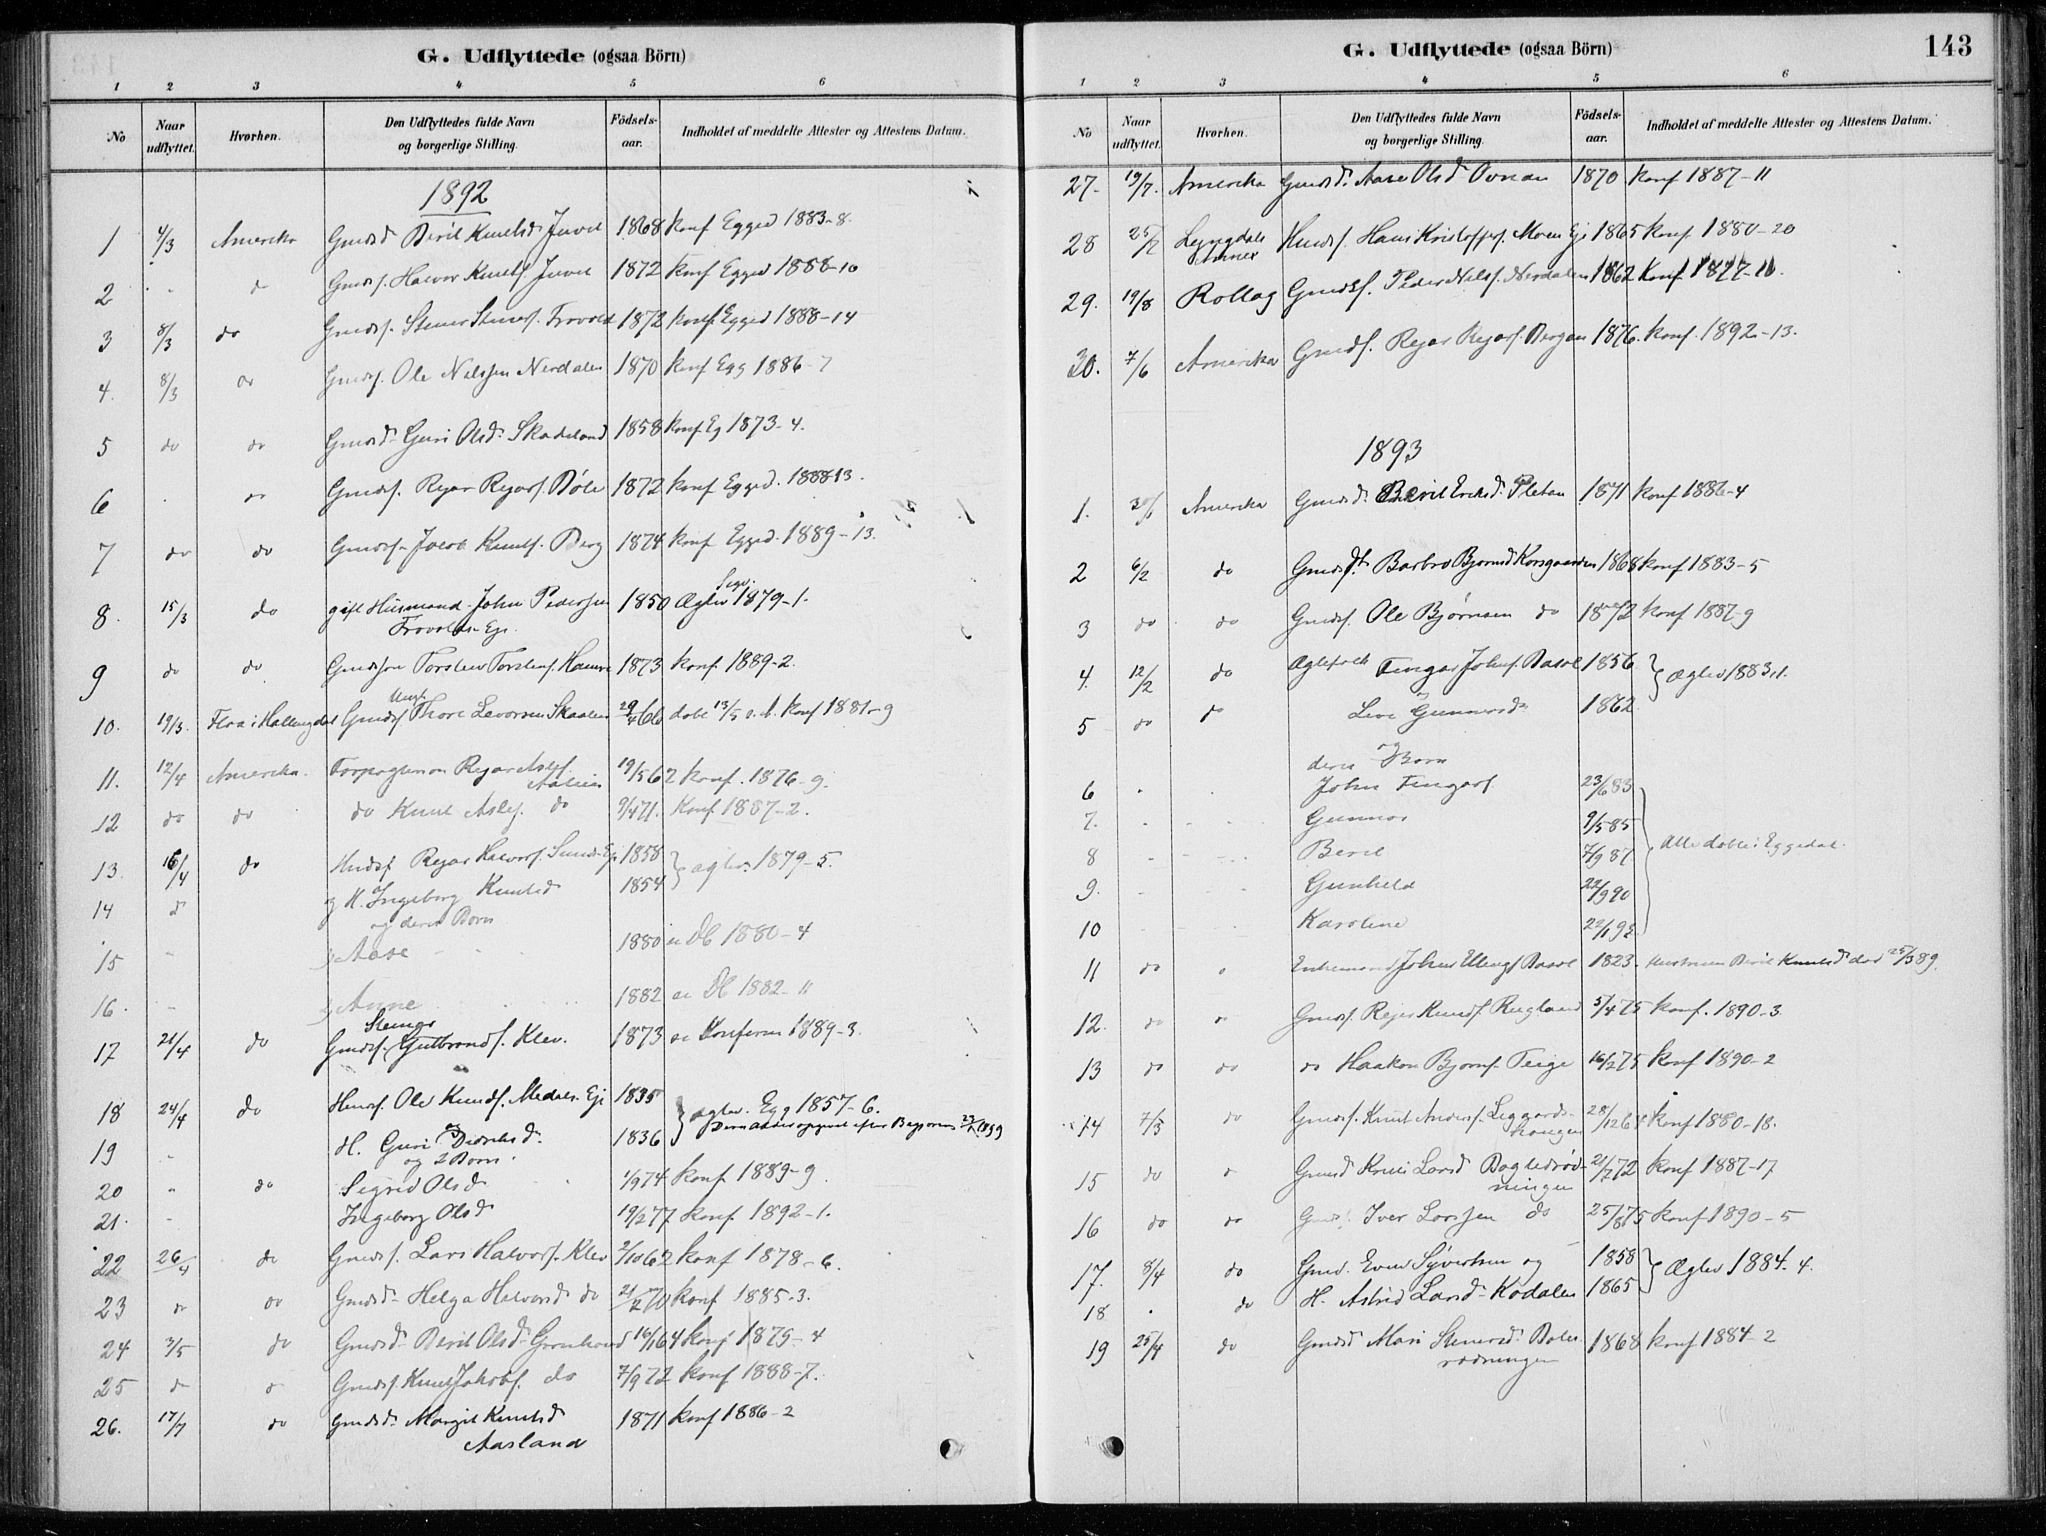 G. Udflyttede (ogsaa Börn)
1 2 3 4 5 6
No
Naar udflyttet.
Hvorhen.
Den Udflyttedes fulde Navn og borgerlige Stilling.
Födsels-aar.
Indholdet af meddelte Attester og Attestens Datum.
1892
1 4/3 Amerika Gmdsd Beril Knutsd Juvel 1868 konf Egged 1883-8.
2 " d Gmdsf. Halvor Knutsf. Juvel 1872 konf Egged 1888-10
3 8/3 do Gmdsf. Stener Stenersf. Frovold 1872 konf. Egged 1888-14
4. 8/3 do Gmdsf. Ole Nilssen Nerdalen 1870 konf Egg 1886-7
5 do do Gmdsd. Guri Olsd. Skadeland 1858 konf Eg 1873-4.
6 do Gmdsf. Rejar Rejarsf. Böle 1872 konf Egged. 1888-13.
7 do do Gmdsf. Jacob Knutsf. Berg 1874 konf Egged. 1889-13.
8. 15/3 do gift Husmand John Pedersen 1850 Æglev 1879-1.
Frovold Eje.
9 do do Gmdsøn Torsten Torstensf. Haavre 1873 konf. 1889-2.
10. 19/3. Flaa i Hallingdal Gmdsf Thore Levorsen Skaalen 29/4 66 døbt 13/5 s.A. konf 1881-9
11. 12/4 Amerika. Rejar Aslesf. 19/5 62 konf. 1876-9.
12 do do do Knut Aslesf. do 9/4 71. Konf. 1887-2.
13. 16/4 do Hmdsf Rejar Halvorsf. Eje 1858 } æglev. 1879-5.
14 d og H. Ingeborg Knutsd 1854
og deres Børn
15 " Aase 1880 se DB 1880-4
16. - Anne 1882 se DB 1882-11
17 21/4 do Gmdsf. Steinar Gulbrandsf. Klev. 1873 se Konferm 1889-3.
18 24/4 do Hmdsf. Ole Knudsf. Medalen Eje 1835 } æglev. Egg 1857-6.
19 " H. Guri Didriksd. 1836
og 2 Børn.
20 " do Sigrid Olsd 1/9 74 konf 1889-9
21. - Ingeborg Olsd 19/2 77 konf. 1892-1.
22 26/4 do Gmdsf. Lars Halvorsf. Klev 2/10 62 konf 1878-6.
23 do do Gmdsd. Helga Halvorsd do 21/2 70 konf 1885.3.
24 3/5 do Gmdsd. Beril Olsd. Grønhovd 16/1 64 konf 1879-4
25 do do Gmdsf. Knut Jakobsf. do 7/9 72 konf 1888-7.
26. 17/7 do Gmdsd. Margit Knutsd 1871 konf 1886-2
Aasland
G. Udflyttede (ogsaa Börn)
143
1 2 3 4 5 6
No
Naar udflyttet.
Hvorhen.
Den Udflyttedes fulde Navn og borgerlige Stilling.
Födsels-aar.
Indholdet af meddelte Attester og Attestens Datum.
27. 19/7. Amerika Gmdsd. Aase Olsd 1870 konf 1887-11
28 25/7 Lyngdals Annex Hmdsf. Hans Kristoffersf. Moen Eje 1865 konf 1880-20
29. 19/8 Rollag Gmdsf. Peder Nilsf. Nerdalen 1862 konf. 1877-11.
30. 7/6 Amerika Gmdsf. Rejar Rejarsf. Bergan 1876. konf. 1892-13.
1893
1. Amerika Gmdsd. Beril Eriksd. Pletan 1871 konf 1886-4
2 6/2 do Barbro Bjørnsd Korsgaarden 1868 konf 1883-5
3 do do Gmdsf. Ole Bjørnsen do 1872 konf 1887-9
4. 12/2 do Ægtefolk Fingar Johnsf. Basøl 1856 } æglev 1883.1.
5 do do Live Gunnarsd 1862
og deres Børn
6 . . John Fingarsf 23/6 83
7. - Gunnar 9/5 85
8 - Beril 7/9 87 Alle døbte i Eggedal.
9. - Gunhild 22/9 90
10 - Karoline 22/1 92
11 do " Enkemand John Ellingsf Basøl 1823. Hustruen Beril Knutsd død 25/3 89.
12. do do Gmdsf. Rejer Knudsf. Rugland 5/4 75 konf. 1890-3
13 do do do Haakon Bjørnsf. Teige 16/2 75 konf 1890-2
14 7/3 do Gmdsf. Knut Andersf. Leggards- 28/12 64 konf 1880-18.
haugen
15 do do Gmdsd Kristi Larsd 21/7 72 konf 1887-17
16 do do Iver Larssen do 25/8 75 konf 1890-5
17. 8/4 do Gmd. Even Syversen og 1858 } Æglev 1884.4.
18 . do H. Astrid Larsd. Kodalen 1865
19 25/4 do Gmdsd Mari Stenersd. Bøle- 1868 konf 1884-2
rødningen